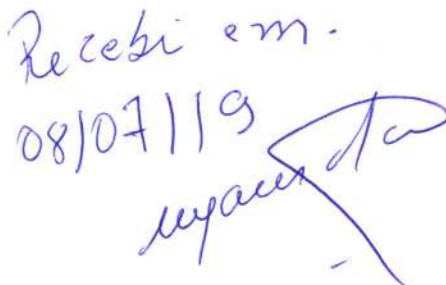 Recebi em.
08/07/19